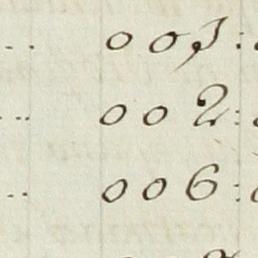 .. 003:
.. 002:
.. 006: